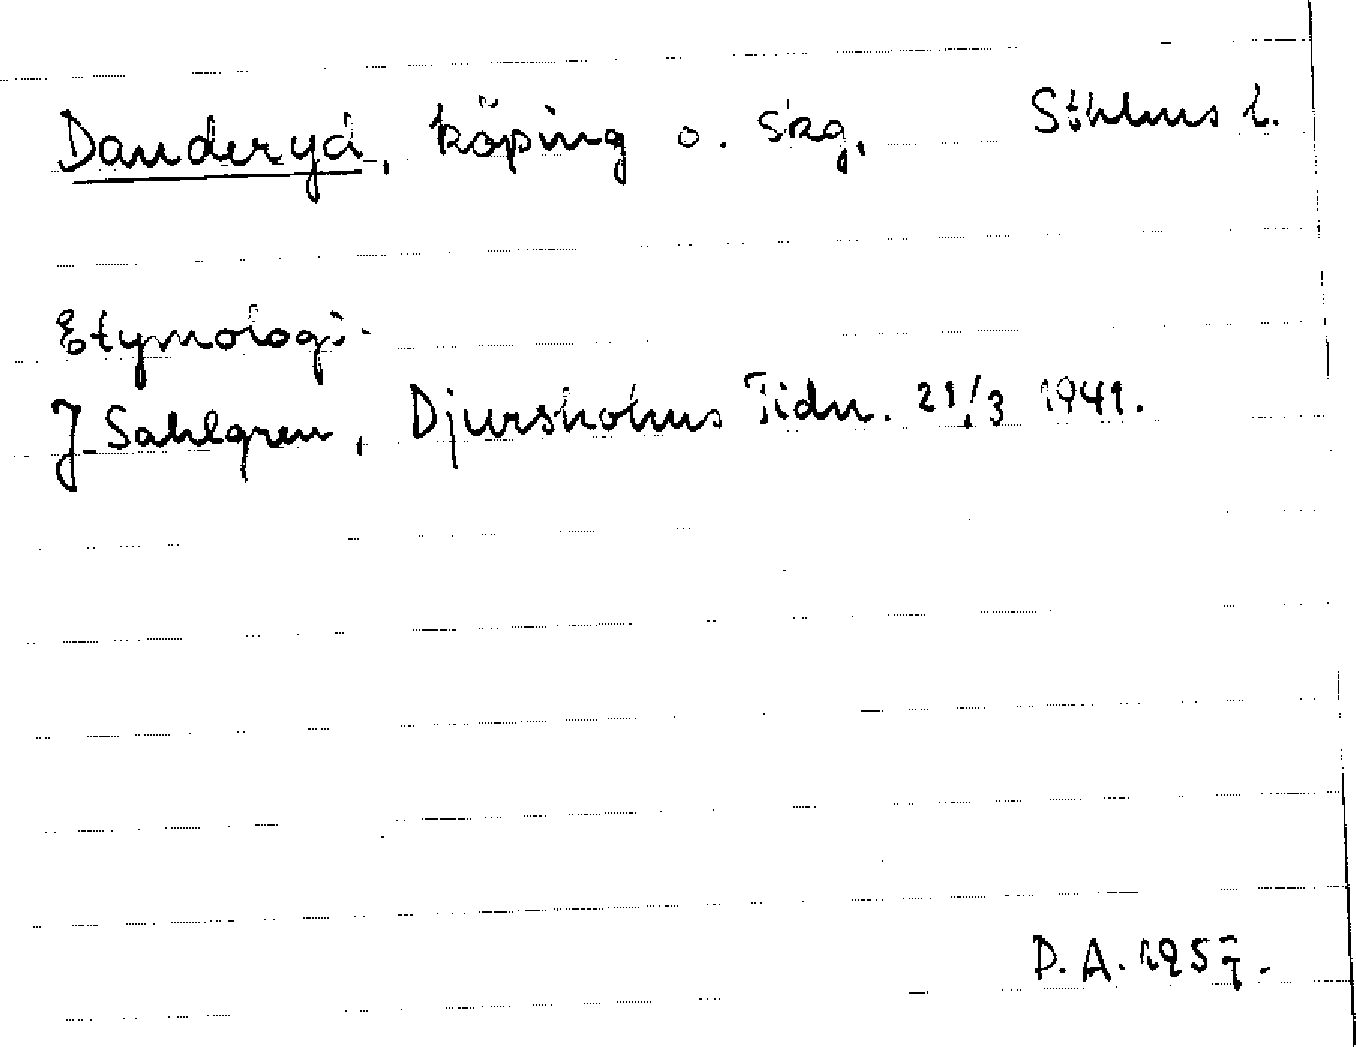 Danderyd, köping o. skg, Sthlms l.
Etymologi.
J. Sahlgren, Djursholms Tidn. 21/3 1941.
D.A. 1957.